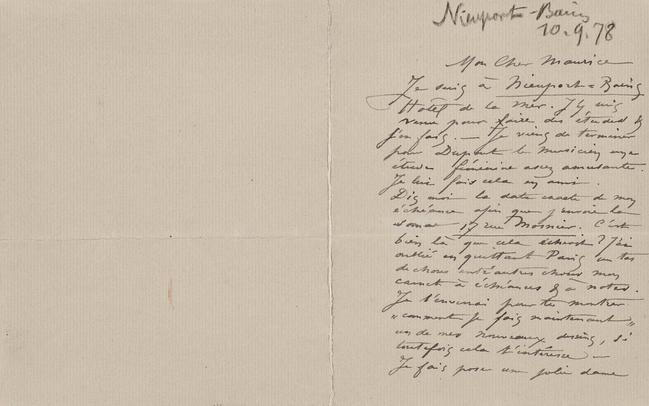 Nieuport-Bains
10.9.78
Mon Cher Maurice
Je suis à Nieuport-Bains
Hotel de la Mer. J'y suis
venu pour faire des études &
j'en fais. — Je viens de terminer
pour Dupont le musicien une
étude féminine assez amusante.
Je lui fais cela en ami.
Dis moi la date exacte de mon
échéance afin que j'envoie la
somme 17 rue Mosnier. C'est
bien là que cela échoit? J'ai
oublié en quittant Paris un tas
de choses entr'autres choses mon
carnet à échéances & à notes.
Je t'enverrai pour te montrer
"comment je fais maintenant"
un de mes nouveaux dessins, si
toutefois cela t'intéresse —
Je fais poser une jolie dame